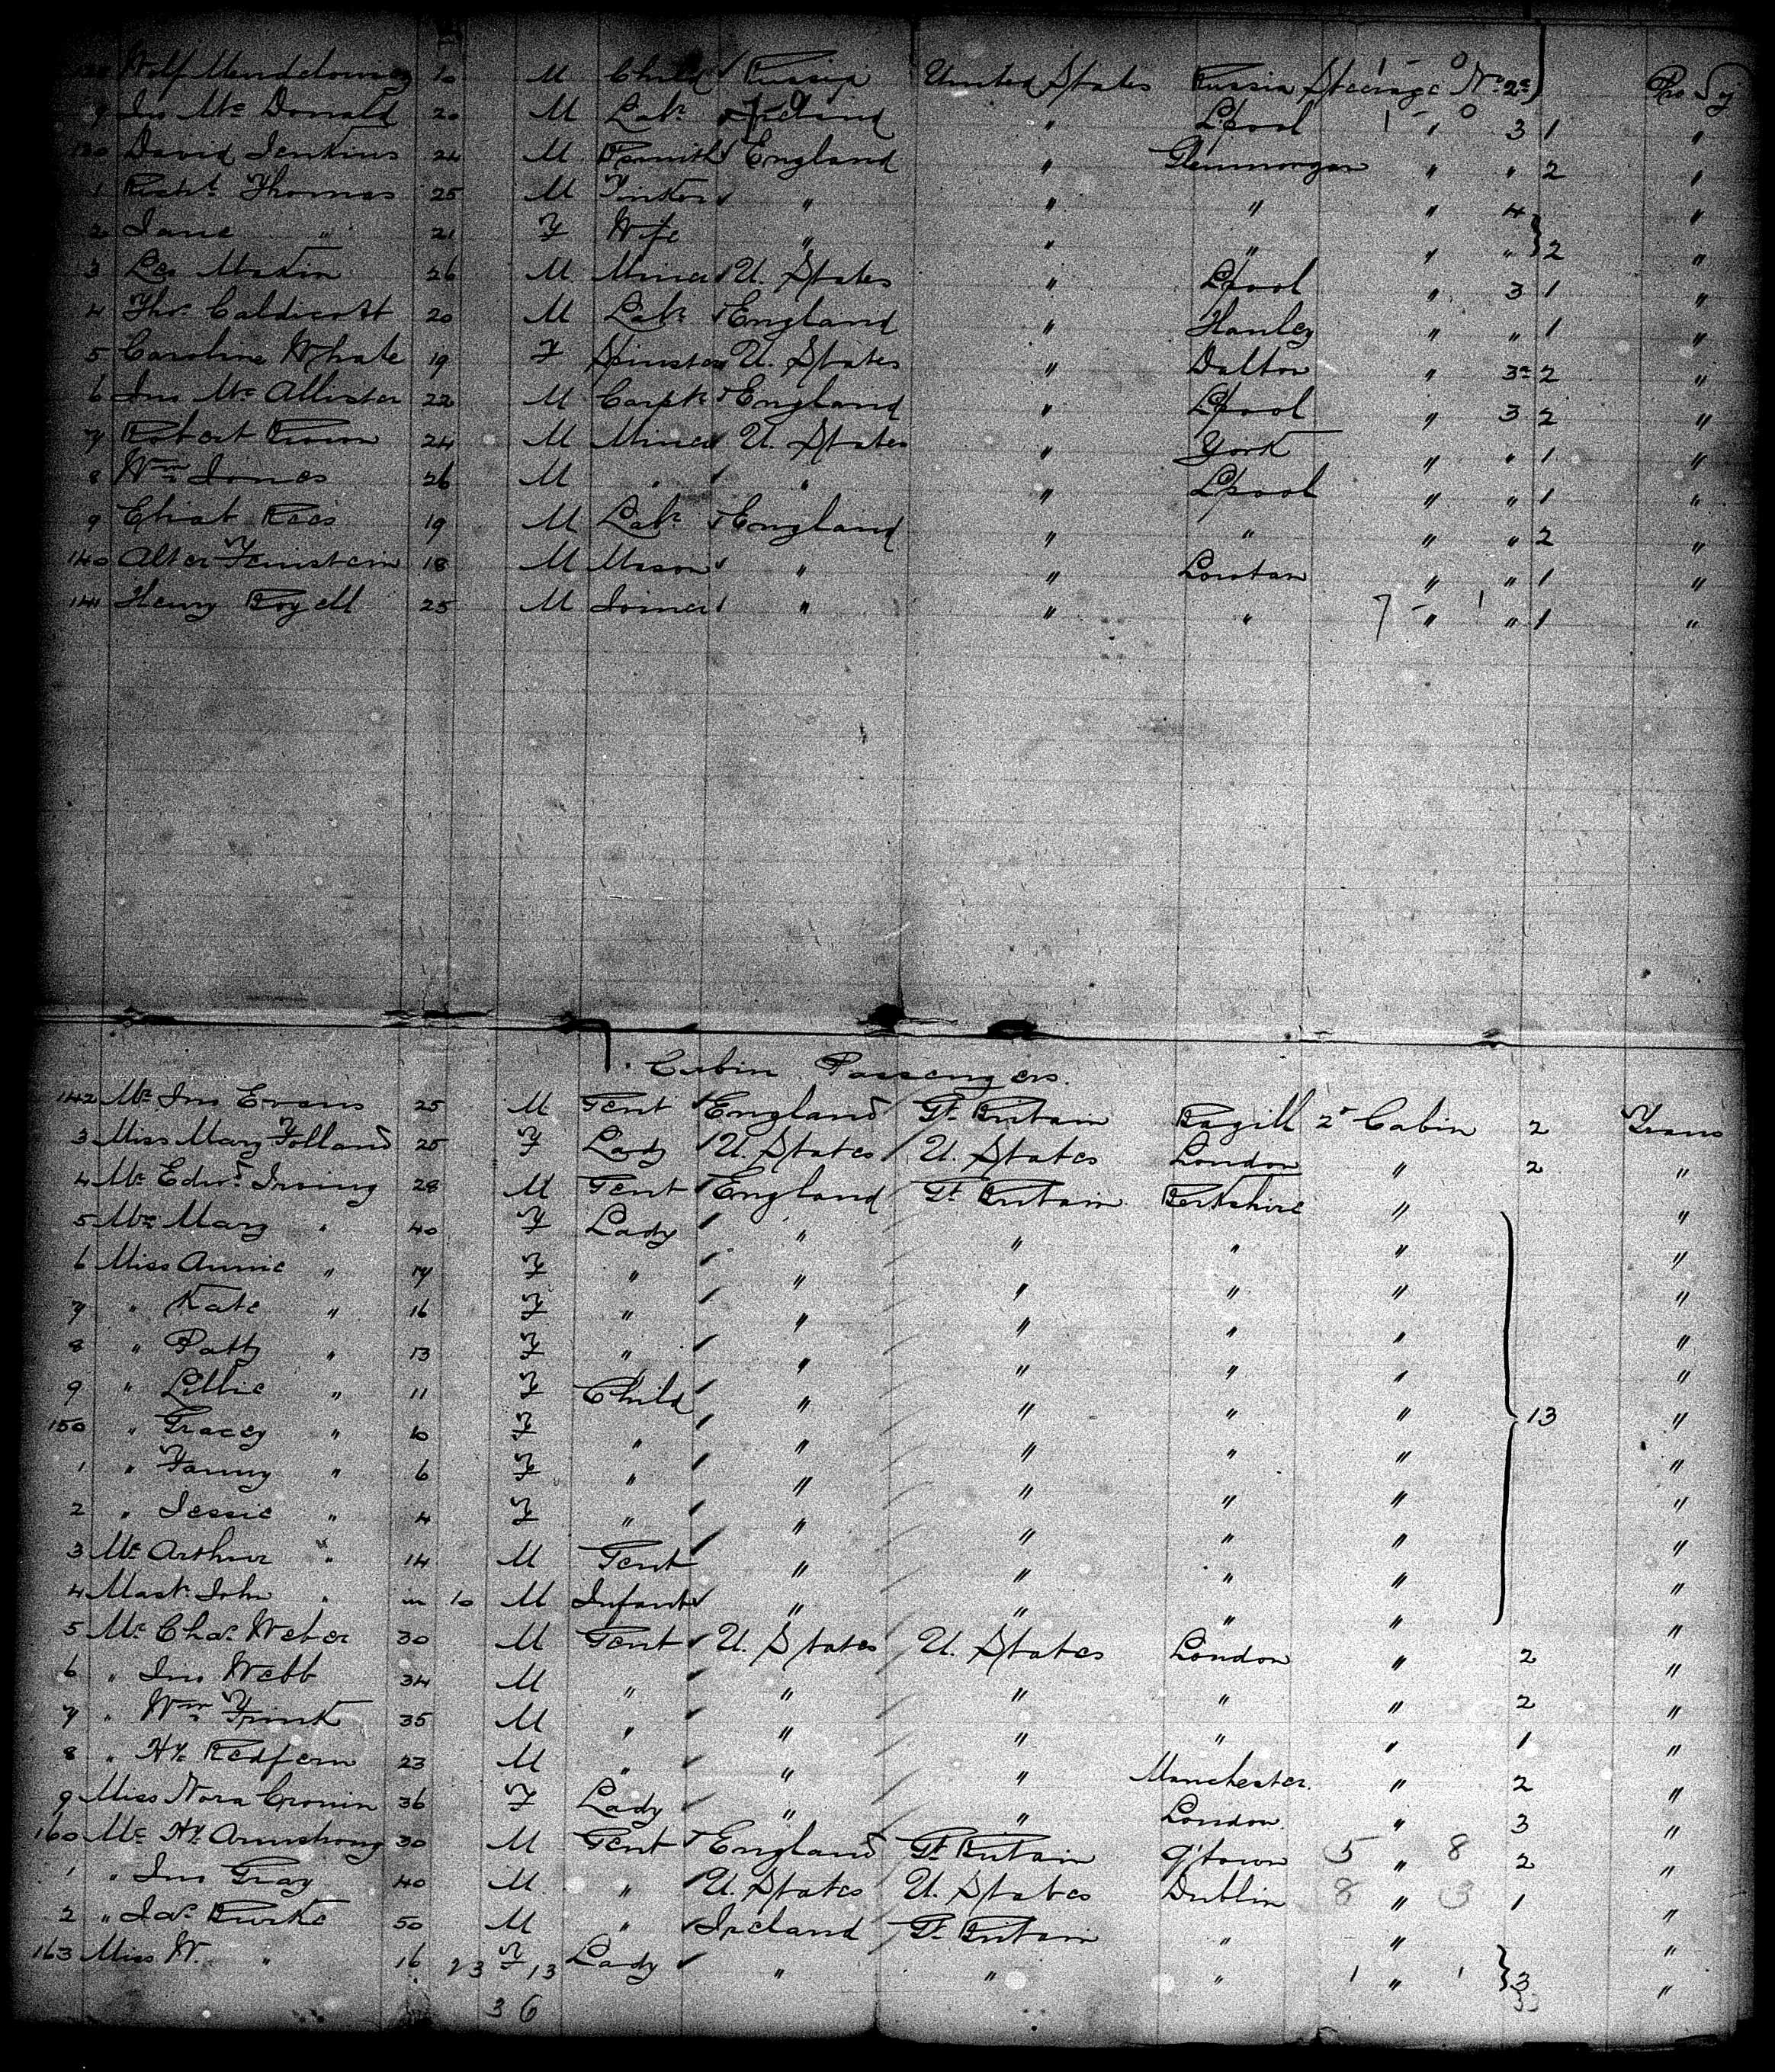 Wolf Mendelowicz 10 M Child Russia United States Russia Steerage No 2
9 Jno Mc Donald 20 M Labr Ireland " L'pool " 3 1 "
130 David Jenkins 24 M " England " Glanmorgan " " 2 "
1 Richd Thomas 25 M Tinker " " " " 4 "
2 Jane " 21 F Wife " " " " " 2 "
3 Leo 26 M Miner U. States " L'pool " 3 1 "
4 Thos Caldicott 20 M Labr England " Hanley " " 1 "
5 Caroline Whale 19 F Spinster U. States " Dalton " 3 2 "
6 Jno Mc Allister 22 M Carptr England " L'pool " 3 2 "
7 Robert Brown 24 M Miner U. States " York " " 1 "
8 Wm Jones 26 M " " " L'pool " " 1 "
9 Rees 19 M Labr England " " " " 2 "
140 Alter Feinstein 18 M Mason " " " " 1 "
141 Henry 25 M Joiner " " " 7 " 1 " 1 "
Cabin Passengers.
142 Mr Jno Evans 25 M Gent England Gt Britain 2d Cabin 2 Trans
3 Miss Mary Folland 25 F Lady U. States U. States London " 2 "
4 Mr Edwd Irving 28 M Gent England Gt Britain Berkshire " "
5 Mrs Mary " 40 F Lady " " " " "
6 Miss Annie " 17 F " " " " " "
7 " Kate " 16 F " " " " " "
8 " Patty " 13 F " " " " " "
9 " Lillie " 11 F Child " " " " "
150 " Gracey " 10 F " " " " " 13 "
1 " Fanny " 6 F " " " " " "
2 " Jessie " 4 F " " " " " "
3 Mr Arthur " 14 M Gent " " " " "
4 Mastr John " in 10 M Infant " " " " "
5 Mr Chas Weber 30 M Gent U. States U. States London " 2 "
6 " Jno Webb 34 M " " " " " 2 "
7 " Wm Frink 35 M " " " " " 1 "
8 " Hy Redfern 23 M " " " Manchester " 2 "
9 Miss Nora Cronin 36 F Lady " " London " 3 "
160 Mr Hy Armstrong 30 M Gent England Gt Britain Q'town 5 " 8 2 "
1 " Jno Gray 40 M " U. States U. States Dublin 8 " 3 1 "
2 " Jas Burke 50 M " Ireland Gt Britain " " "
163 Miss W. " 16 23 F 13 Lady " " " 1 " 1 3 "
36